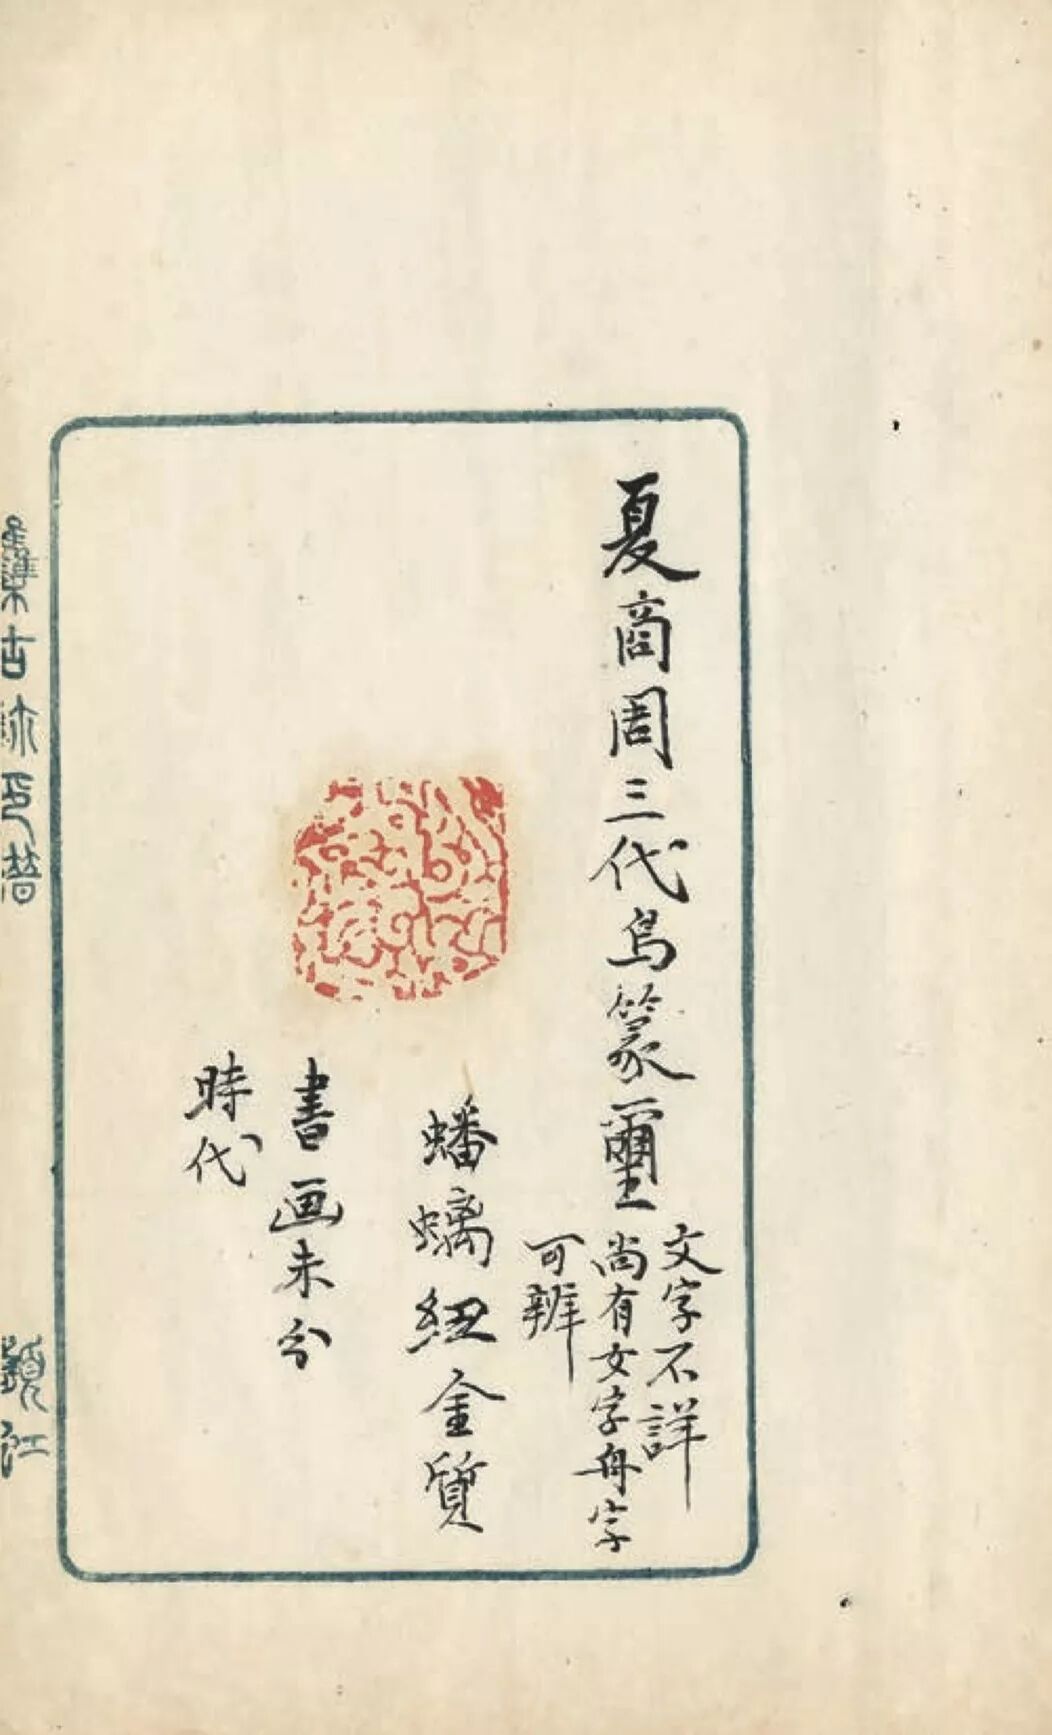 夏商周三代鳥篆璽
文字不詳
尚有女字舟字
可辨
蟠螭鈕金質
書画未分
時代
集古銖印譜
鎮江